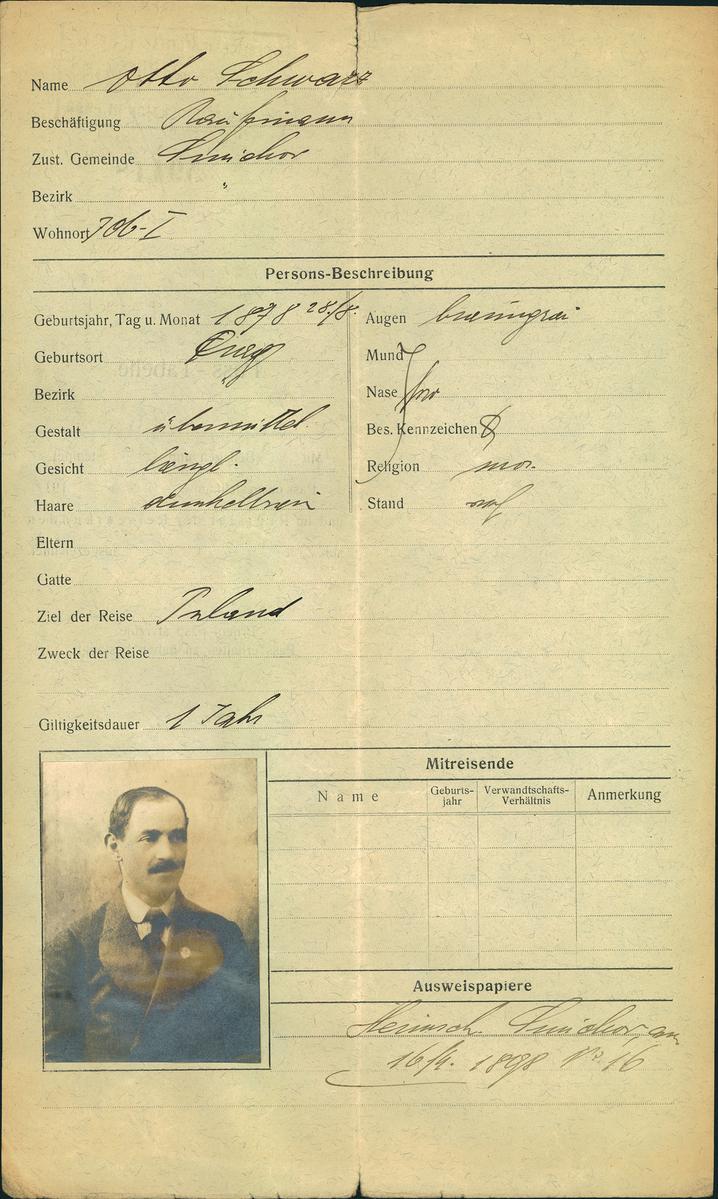 Name Otto Schwarz
Beschäftigung Kaufmann
Zust. Gemeinde Smichov
Bezirk "
Wohnort 706-I
Persons-Beschreibung
Geburtsjahr, Tag u. Monat 1878 28./8.
Geburtsort Prag
Bezirk "
Gestalt übermittel
Gesicht längl.
Haare dunkelbraun
Eltern
Gatte
Ziel der Reise Inland
Zweck der Reise
Giltigkeitsdauer 1 Jahr
Augen braungrau
Mund
Nase
Bes. Kennzeichen
Religion mos.
Stand
Mitreisende
Name Geburts-jahr Verwandtschafts-Verhältnis Anmerkung
Ausweispapiere
Heimsch. Smichov
16/4. 1898 No. 16